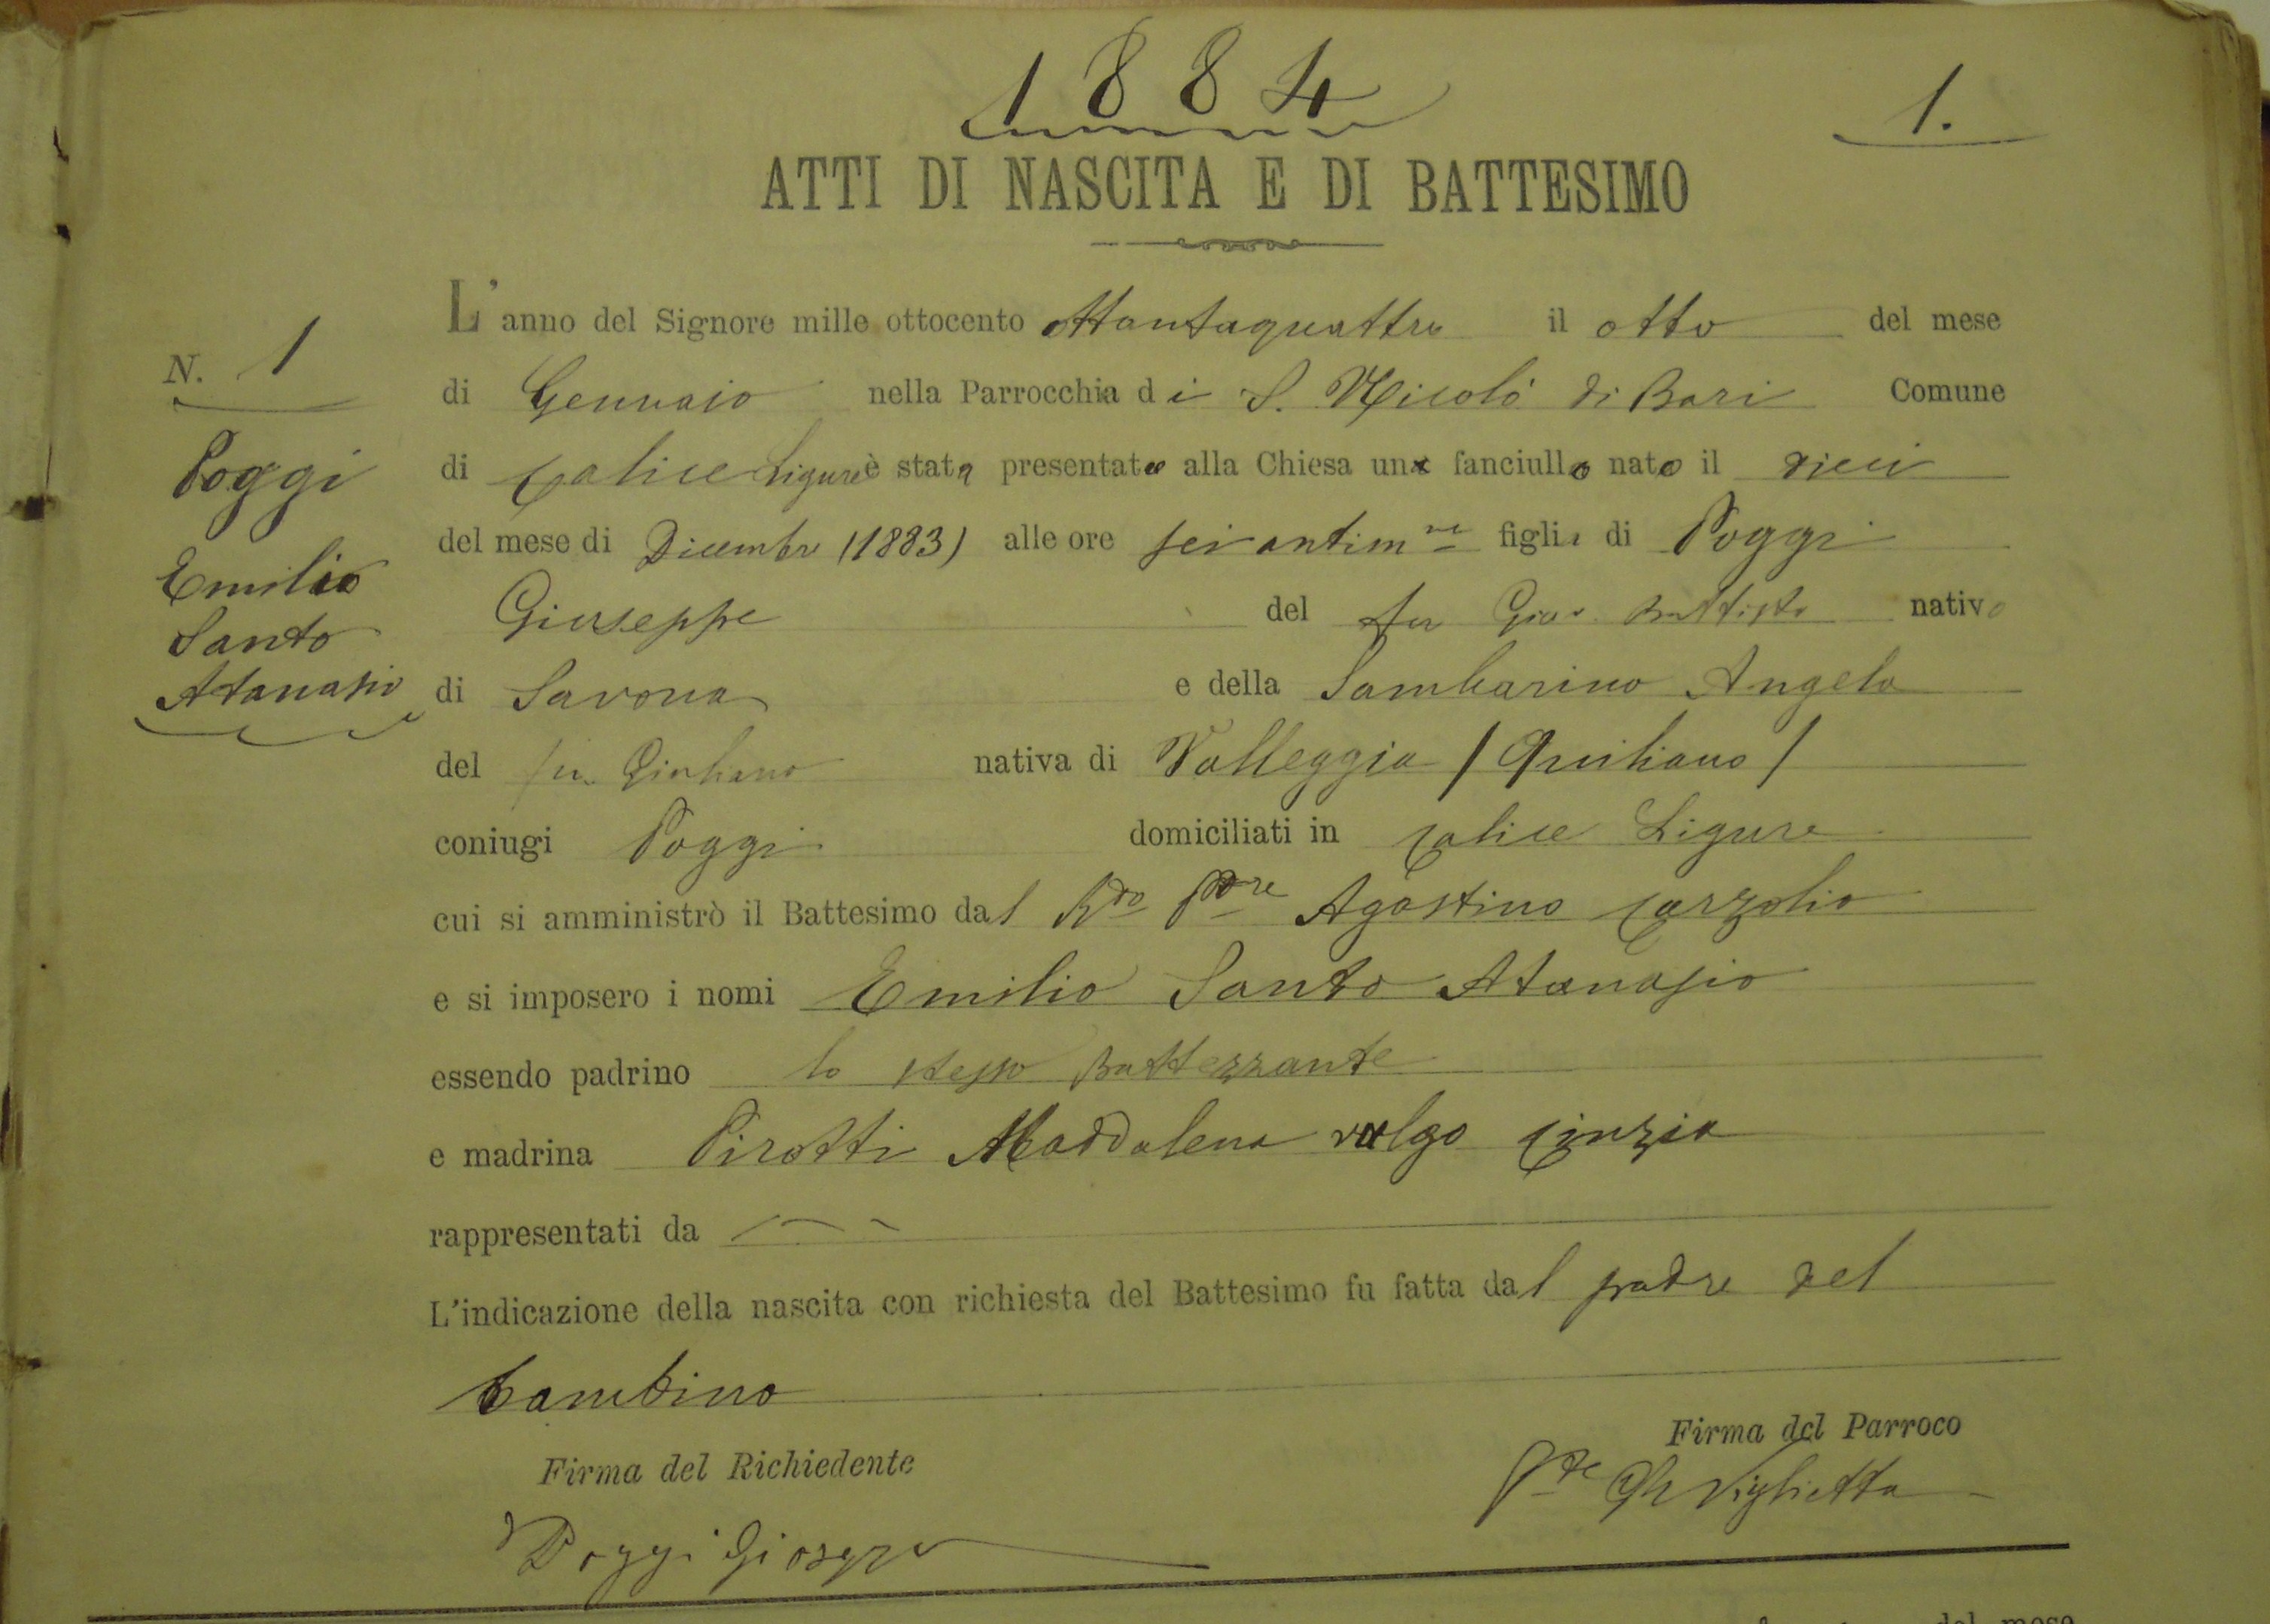 1884
1.
ATTI DI NASCITA E DI BATTESIMO
L'anno del Signore mille ottocento ottantaquattro il otto del mese
N. 1
di Gennaio nella Parrocchia di S. Nicolò di Bari Comune
Poggi
di Calice Ligure è stata presentato alla Chiesa un fanciullo nato il dieci
del mese di Dicembre (1883) alle ore sei antim.ne figlio di Poggi
Emilio
Giuseppe del fu Gio. Battista nativo
Santo
Atanasio
di Savona e della Sambarino Angela
del fu Giuliano nativa di Valleggia / Quiliano /
coniugi Poggi domiciliati in Calice Ligure
cui si amministrò il Battesimo dal Rdo Agostino Carzolio
e si imposero i nomi Emilio Santo Atanasio
essendo padrino lo stesso Battezzante
e madrina Pirotti Maddalena vulgo Cinzia
rappresentati da
L'indicazione della nascita con richiesta del Battesimo fu fatta dal padre del
bambino
Firma del Parroco
Firma del Richiedente
Pte Viglietta
Poggi
del mese